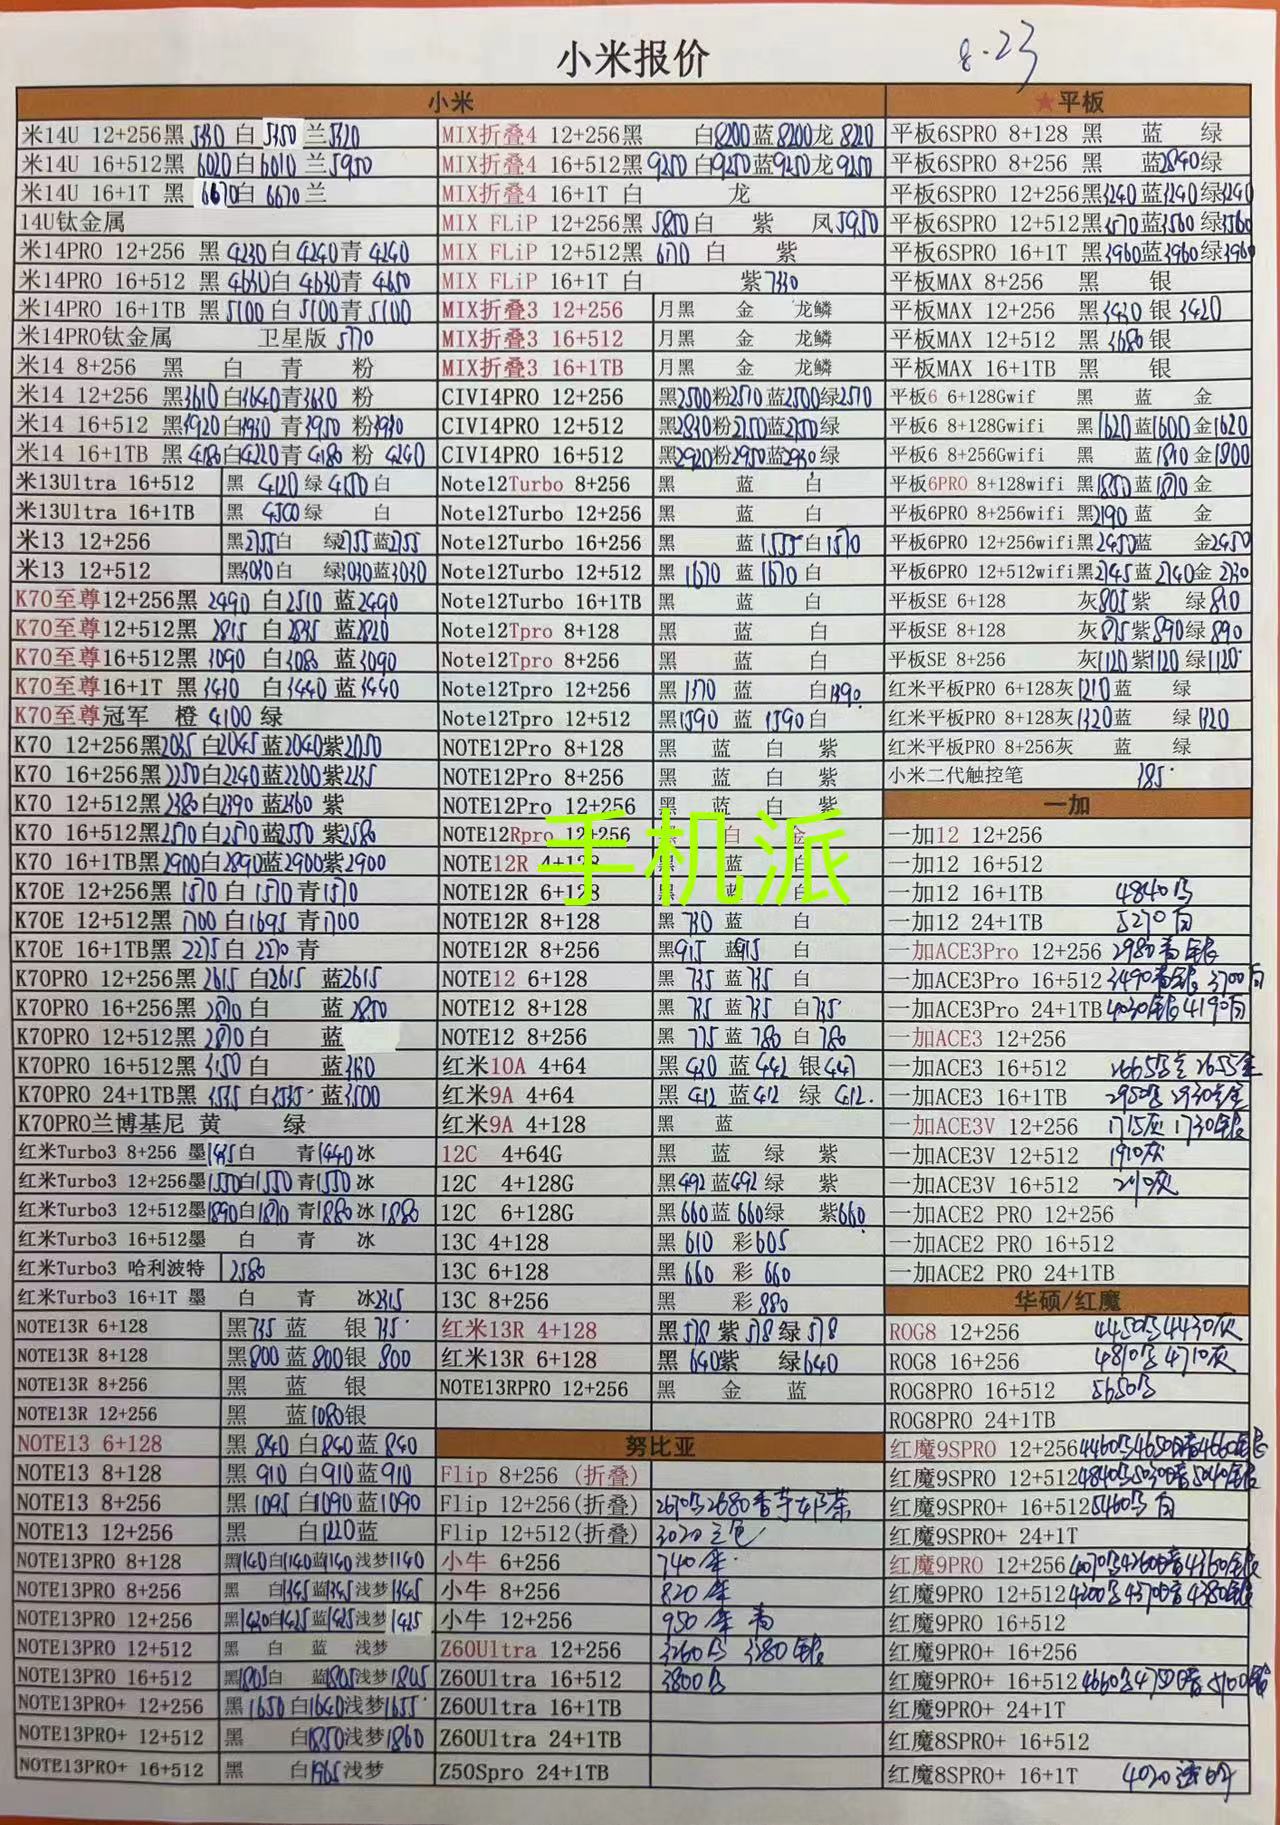 小米报价
8.23
小米
米14U 12+256黑 5330 白 5350 兰5320
米14U 16+512黑 6020白6010 兰5950
米14U 16+1T 黑 6670白 6670 兰
14U钛金属
米14PRO 12+256 黑 4230白 4240青 4240
米14PRO 16+512 黑 4630白 4630青 4650
米14PRO 16+1TB 黑 5100白 5100青 5100
米14PRO钛金属 卫星版 5770
米14 8+256 黑 白 青 粉
米14 12+256 黑3610白3640青3630 粉
米14 16+512 黑3920白3930 青3950 粉3930
米14 16+1TB 黑 4180白4220青 4180 粉 4240
米13Ultra 16+512 黑 4120 绿 4150 白
米13Ultra 16+1TB 黑 4500绿 白
米13 12+256 黑2755白 绿2755蓝2755
米13 12+512 黑3030白 绿3030蓝3030
K70至尊12+256黑 2490 白2510 蓝2490
K70至尊12+512黑 2815 白2835 蓝2820
K70至尊16+512黑 3090 白3080 蓝3090
K70至尊16+1T 黑 3430 白3440 蓝3440
K70至尊冠军 橙 4100 绿
K70 12+256黑2035白2045蓝2040紫2050
K70 16+256黑2250白2240蓝2200紫2235
K70 12+512黑2380白2390 蓝2360 紫
K70 16+512黑2570白2570蓝2550 紫2580
K70 16+1TB黑2900白2890蓝2900紫2900
K70E 12+256黑 1570 白 1570 青1570
K70E 12+512黑 1700 白1695 青1700
K70E 16+1TB黑 2275白 2270 青
K70PRO 12+256黑 2615 白2615 蓝2615
K70PRO 16+256黑 2870白 蓝2850
K70PRO 12+512黑 2870白 蓝
K70PRO 16+512黑 3150 白 蓝3130
K70PRO 24+1TB黑 3535 白3535 蓝3500
K70PRO兰博基尼 黄 绿
红米Turbo3 8+256 墨1435白 青1440冰
红米Turbo3 12+256墨1550白1550 青1550冰
红米Turbo3 12+512墨1890白1870 青1880冰 1880
红米Turbo3 16+512墨 白 青 冰
红米Turbo3 哈利波特 2580
红米Turbo3 16+1T 墨 白 青 冰2315
NOTE13R 6+128 黑735 蓝 银735
NOTE13R 8+128 黑800 蓝800银 800
NOTE13R 8+256 黑 蓝 银
NOTE13R 12+256 黑 蓝1080银
NOTE13 6+128 黑 840 白840蓝 840
NOTE13 8+128 黑 910 白910蓝910
NOTE13 8+256 黑 1095 白1090 蓝1090
NOTE13 12+256 黑 白1220蓝
NOTE13PRO 8+128 黑1140白1140蓝1140 浅梦1140
NOTE13PRO 8+256 黑 白1345蓝1345浅梦1345
NOTE13PRO 12+256 黑1430白1425蓝1425浅梦1425
NOTE13PRO 12+512 黑 白 蓝 浅梦
NOTE13PRO 16+512 黑1805白 蓝1805浅梦1805
NOTE13PRO+ 12+256 黑1650白1640浅梦1655
NOTE13PRO+ 12+512 黑 白1850浅梦1860
NOTE13PRO+ 16+512 黑 白1965浅梦
MIX折叠4 12+256黑 白8200蓝8200龙 8220
MIX折叠4 16+512黑9250白9250蓝9250龙9250
MIX折叠4 16+1T 白 龙
MIX FLiP 12+256黑 5850白 紫 凤5950
MIX FLiP 12+512黑 6170 白 紫
MIX FLiP 16+1T 白 紫7330
MIX折叠3 12+256 月黑 金 龙鳞
MIX折叠3 16+512 月黑 金 龙鳞
MIX折叠3 16+1TB 月黑 金 龙鳞
CIVI4PRO 12+256 黑2500粉2510蓝2500绿2510
CIVI4PRO 12+512 黑2830粉2750蓝2750绿
CIVI4PRO 16+512 黑2920粉2950蓝2930绿
Note12Turbo 8+256 黑 蓝 白
Note12Turbo 12+256 黑 蓝 白
Note12Turbo 16+256 黑 蓝1555白1570
Note12Turbo 12+512 黑 1670 蓝1670 白
Note12Turbo 16+1TB 黑 蓝 白
Note12Tpro 8+128 黑 蓝 白
Note12Tpro 8+256 黑 蓝 白
Note12Tpro 12+256 黑1370 蓝 白1390
Note12Tpro 12+512 黑1590 蓝 1590白
NOTE12Pro 8+128 黑 蓝 白 紫
NOTE12Pro 8+256 黑 蓝 白 紫
NOTE12Pro 12+256 黑 蓝 白 紫
NOTE12Rpro 12+256 黑 白 金
NOTE12R 4+128 黑 蓝 白
NOTE12R 6+128 黑 蓝 白
NOTE12R 8+128 黑 730 蓝 白
NOTE12R 8+256 黑915 蓝915 白
NOTE12 6+128 黑 735 蓝735 白
NOTE12 8+128 黑 735 蓝735 白735
NOTE12 8+256 黑 775 蓝 780 白 780
红米10A 4+64 黑 430 蓝442 银447
红米9A 4+64 黑 412 蓝412 绿 412
红米9A 4+128 黑 蓝
12C 4+64G 黑 蓝 绿 紫
12C 4+128G 黑492蓝492绿 紫
12C 6+128G 黑660蓝 660绿 紫660
13C 4+128 黑 610 彩605
13C 6+128 黑 660 彩 660
13C 8+256 黑 彩880
红米13R 4+128 黑578 紫578绿578
红米13R 6+128 黑 640紫 绿640
NOTE13RPRO 12+256 黑 金 蓝
努比亚
Flip 8+256 (折叠)
Flip 12+256(折叠) 2670乌2680香芋奶茶
Flip 12+512(折叠) 3020三色
小牛 6+256 740
小牛 8+256 820
小牛 12+256 950
Z60Ultra 12+256 3260乌 3280银
Z60Ultra 16+512 3800乌
Z60Ultra 16+1TB
Z60Ultra 24+1TB
Z50Spro 24+1TB
★平板
平板6SPRO 8+128 黑 蓝 绿
平板6SPRO 8+256 黑 蓝2840绿
平板6SPRO 12+256黑3240蓝3240绿3240
平板6SPRO 12+512黑3570蓝3560 绿3560
平板6SPRO 16+1T 黑3960蓝3960绿3960
平板MAX 8+256 黑 银
平板MAX 12+256 黑3430 银 3420
平板MAX 12+512 黑 3680银
平板MAX 16+1TB 黑 银
平板6 6+128Gwif 黑 蓝 金
平板6 8+128Gwifi 黑1620蓝1600金1620
平板6 8+256Gwifi 黑 蓝1810金1800
平板6PRO 8+128wifi 黑1850蓝1870金
平板6PRO 8+256wifi 黑2190蓝 金
平板6PRO 12+256wifi黑2450蓝 金2450
平板6PRO 12+512wifi黑2745蓝2740金 2730
平板SE 6+128 灰805紫 绿810
平板SE 8+128 灰875紫890绿890
平板SE 8+256 灰1120紫1120绿1120
红米平板PRO 6+128灰1210蓝 绿
红米平板PRO 8+128灰1320蓝 绿 1320
红米平板PRO 8+256灰 蓝 绿
小米二代触控笔 385
一加
一加12 12+256
一加12 16+512
一加12 16+1TB 4840乌
一加12 24+1TB 5270白
一加ACE3Pro 12+256 2980青银
一加ACE3Pro 16+512 3490青银 3700白
一加ACE3Pro 24+1TB4030银4190白
一加ACE3 12+256
一加ACE3 16+512 2665乌 2655金
一加ACE3 16+1TB 2950乌 2930金
一加ACE3V 12+256 1715灰 1730银
一加ACE3V 12+512 1910灰
一加ACE3V 16+512 2110灰
一加ACE2 PRO 12+256
一加ACE2 PRO 16+512
一加ACE2 PRO 24+1TB
华硕/红魔
ROG8 12+256 4450乌4430灰
ROG8 16+256 4810乌4710灰
ROG8PRO 16+512 5650乌
ROG8PRO 24+1TB
红魔9SPRO 12+256 4460乌4650暗4660银
红魔9SPRO 12+512 4840乌5030暗5040银
红魔9SPRO+ 16+512 5460乌 白
红魔9SPRO+ 24+1T
红魔9PRO 12+256 4070乌4260暗4360银
红魔9PRO 12+512 4200乌4370暗4380银
红魔9PRO 16+512
红魔9PRO+ 16+256
红魔9PRO+ 16+512 4660乌
红魔9PRO+ 24+1T
红魔8SPRO+ 16+512
红魔8SPRO+ 16+1T 4020透明
手机派